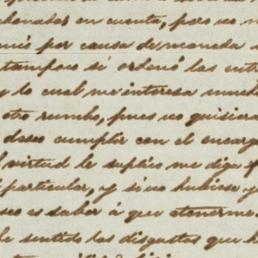 abonarlos en cuenta, pero no
por causa de manada
tampoco si ordenó las
y lo cual me interesa mucho
otro rumbo, pues no quisiera
deseo cumplir con el encarg
virtud le suplico me diga
particular, y si no hubiese
es saber á que atenerme.
sentido los disgustos que h